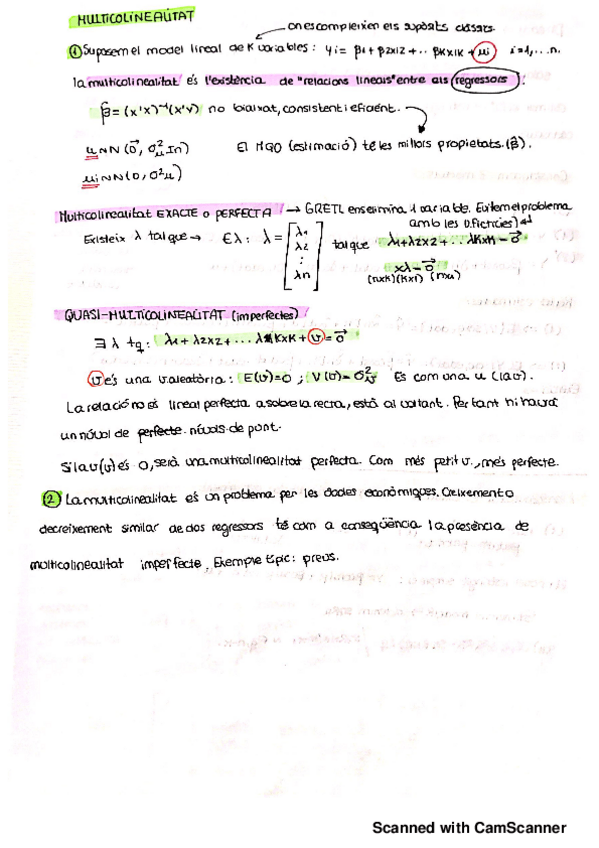 MULTICOLINEALITAT
on es compleixen els supòsits clàssics.
① Suposem el model lineal de K variables: yi = β1 + β2X2 + .. βKXiK + μi i=1,...n.
la multicolinealitat és l'existència de "relacions lineals" entre els regressors.
β̂ = (x'x)⁻¹(x'y) no biaixat, consistent i eficient.
μ ~ N(0⃗, σ²μ In) El MQO (estimació) té les millors propietats. (β̂).
μi ~ N(0, σ²μ)
Multicolinealitat EXACTE o PERFECTA → GRETL ens elimina 1 variable. Evitem el problema
amb les D. fictícies)
Existeix λ tal que → Eλ: λ = [λ1 λ2 : λn] tal que λ1+λ2X2+...λKXK = 0⃗
xλ = 0⃗
(nxK)(Kx1) (nx1)
QUASI-MULTICOLINEALITAT (imperfectes)
∃ λ tq: λ1+λ2X2+...λKXK+v = 0⃗
v és una v. aleatòria: E(v)=0 ; V(v)=σ²v Es com una u (la v).
La relació no és lineal perfecta a sobre la recta, està al voltant. Per tant hi haurà
un núvol de perfecte. núvols de punt.
Si la v(v) és 0, serà una multicolinealitat perfecta. Com més petit v., més perfecte.
② La multicolinealitat és un problema per les dades econòmiques. Creixement o
decreixement similar de dos regressors té com a conseqüència la presència de
multicolinealitat imperfecte, Exemple típic: preus.
Scanned with CamScanner